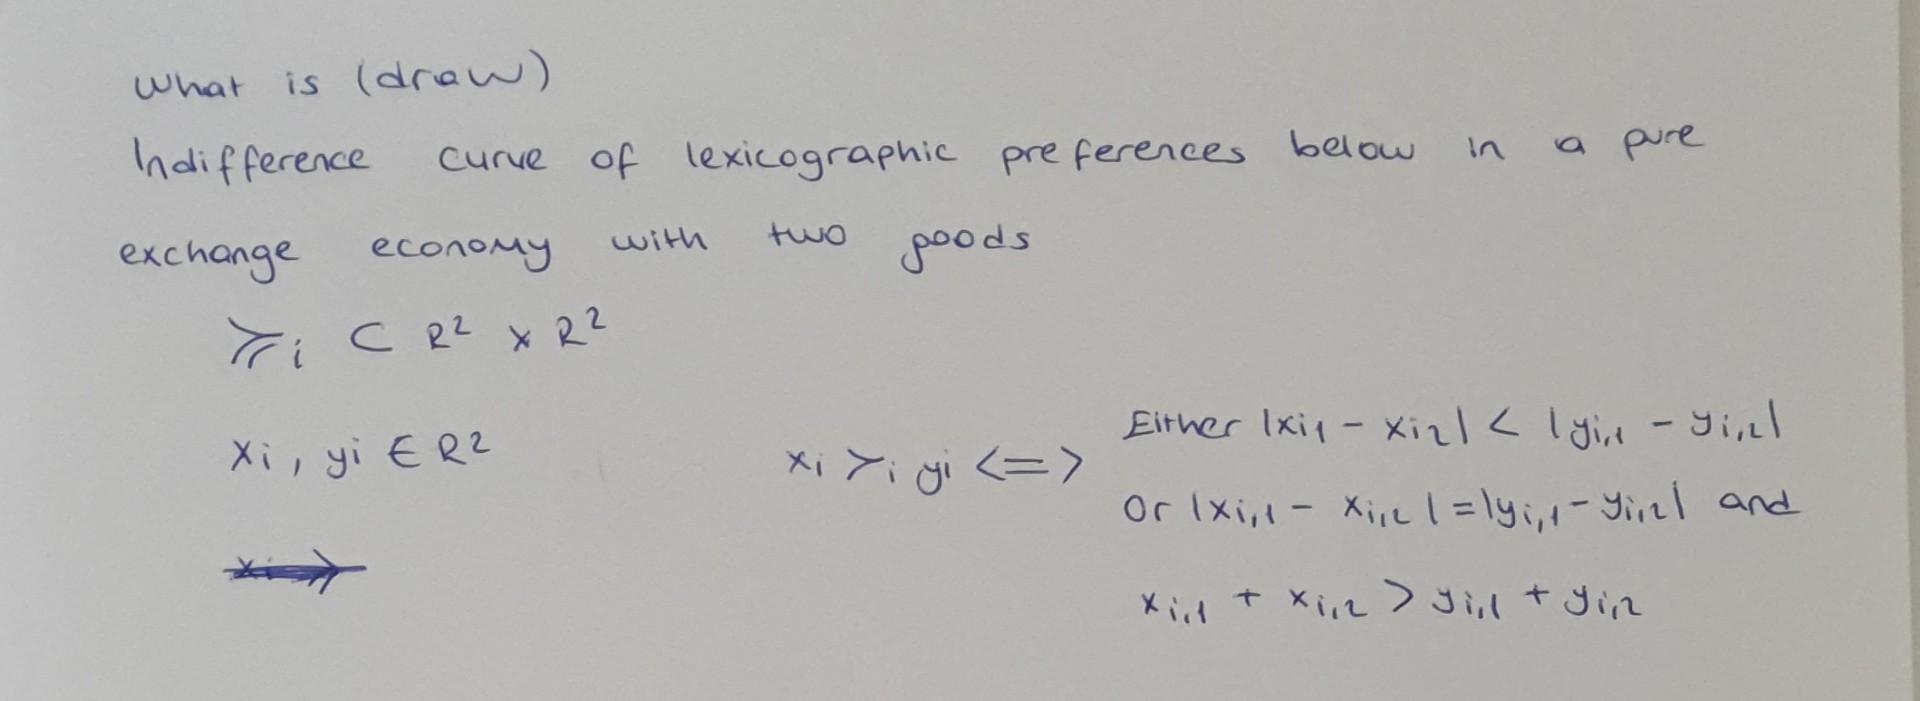 What is (draw)
Indifference curve of lexicographic preferences below in a pure
exchange economy with two goods
≽i ⊂ R² × R²
xi, yi ∈ R²
xi ≻i yi <=>
Either |xi1 - xi2| < |yi,1 - yi,2|
Or |xi,1 - xi,2| = |yi,1 - yi,2| and
xi,1 + xi,2 > yi,1 + yi,2